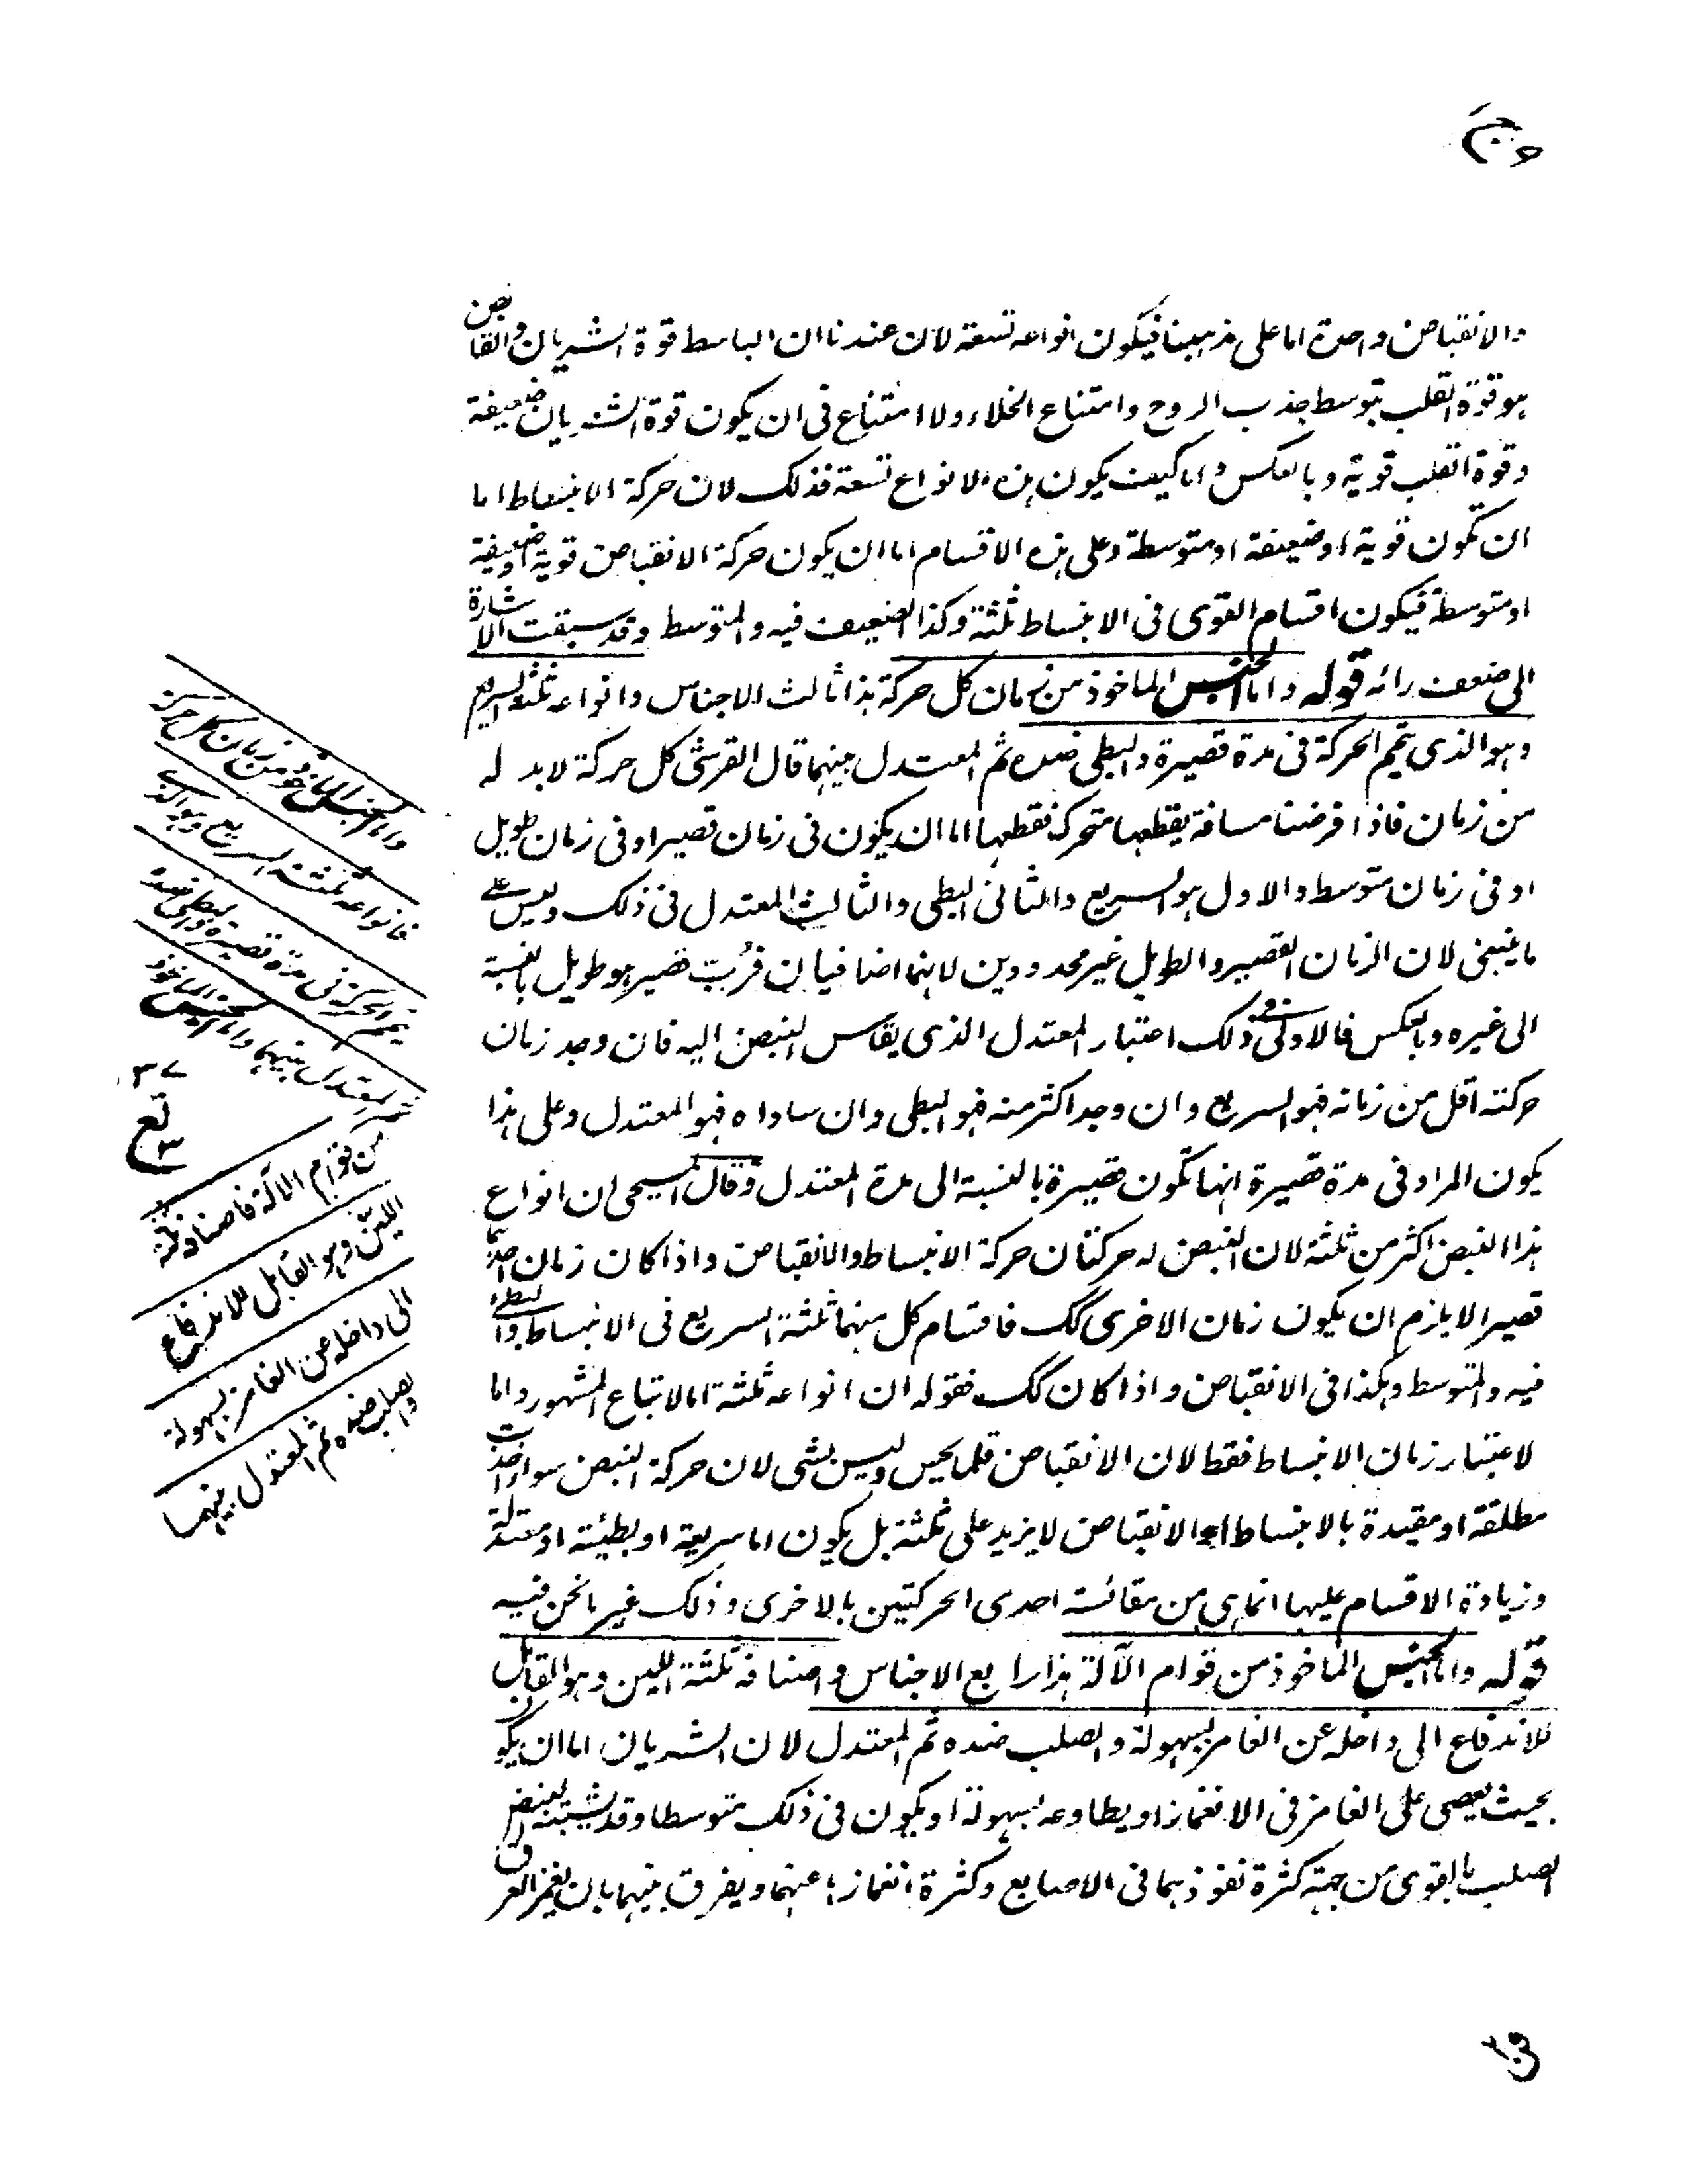 والانقباض واحدة اما على مذهبنا فيكون انواعه تسعة لان عندنا ان الباسط قوة الشريان والقابض
هو قوة القلب بتوسط جذب الروح وامتناع الخلاء ولا امتناع فى ان يكون قوة الشريان ضعيفة
وقوة القلب قوية وبالعكس واما كيف يكون هذه الانواع تسعة فذلك لان حركة الانبساط اما
ان تكون قوية او ضعيفة او متوسطة وعلى هذه الاقسام اما ان يكون حركة الانقباض قوية او ضعيفة
او متوسطة فيكون اقسام القوى فى الانبساط ثلثة وكذا الضعيف فيه والمتوسط وقد سبقت الاشارة
الى ضعف رائه قوله واما الجنس الماخوذ من زمان كل حركة هذا ثالث الاجناس وانواعه ثلثة السريع
وهو الذى يتمم الحركة فى مدة قصيرة والبطى ضده ثم المعتدل بينهما قال القرشى كل حركة لابد له
من زمان فاذا فرضنا مسافة يقطعها متحرك فقطعها اما ان يكون فى زمان قصير او فى زمان طويل
او فى زمان متوسط والاول هو السريع والثانى البطى والثالث المعتدل فى ذلك وليس على
ما ينبغى لان الزمان القصير والطويل غير محدودين لانهما اضافيان فرب قصير هو طويل بالنسبة
الى غيره وبالعكس فالاولى فى ذلك اعتبار المعتدل الذى يقاس النبض اليه فان وجد زمان
حركته اقل من زمانه فهو السريع وان وجد اكثر منه فهو البطى وان ساواه فهو المعتدل وعلى هذا
يكون المراد فى مدة قصيرة انها تكون قصيرة بالنسبة الى مدة المعتدل وقال المسيحى ان انواع
هذا النبض اكثر من ثلثة لان النبض له حركتان حركة الانبساط والانقباض واذا كان زمان احدهما
قصيرا لا يلزم ان يكون زمان الاخرى كك فاقسام كل منهما ثلثة السريع فى الانبساط والبطى
فيه والمتوسط وهكذا فى الانقباض واذا كان كك فقوله ان انواعه ثلثة اما لاتباع المشهور واما
لاعتبار زمان الانبساط فقط لان الانقباض قلما يحس وليس بشى لان حركة النبض سواء اخذت
مطلقة او مقيدة بالانبساط او الانقباض لا يزيد على ثلثة بل يكون اما سريعة او بطيئة او معتدلة
وزيادة الاقسام عليها انما هى من مقائسة احدى الحركتين بالاخرى وذلك غير ما نحن فيه
قوله واما الجنس الماخوذ من قوام الآلة هذا رابع الاجناس واصنافه ثلثة اللين وهو القابل
للاندفاع الى داخله عن الغامز بسهولة والصلب ضده ثم المعتدل لان الشريان اما ان يكون
بحيث يعصى على الغامز فى الانغماز او يطاوعه بسهولة او يكون فى ذلك متوسطا وقد يشتبه النبض
الصلب بالقوى من جهة كثرة نفوذهما فى الاصابع وكثرة انغمازها عنهما ويفرق بينهما بان يغمز العرق
واما الجنس الماخوذ من زمان كل حركة
فانواعه ثلثة السريع وهو الذى
يتمم الحركة فى مدة قصيرة والبطى ضده
ثم المعتدل بينهما واما الجنس الماخوذ
من قوام الآلة فاصنافه ثلثة
اللين وهو القابل للاندفاع
الى داخله عن الغامز بسهولة
والصلب ضده ثم المعتدل بينهما